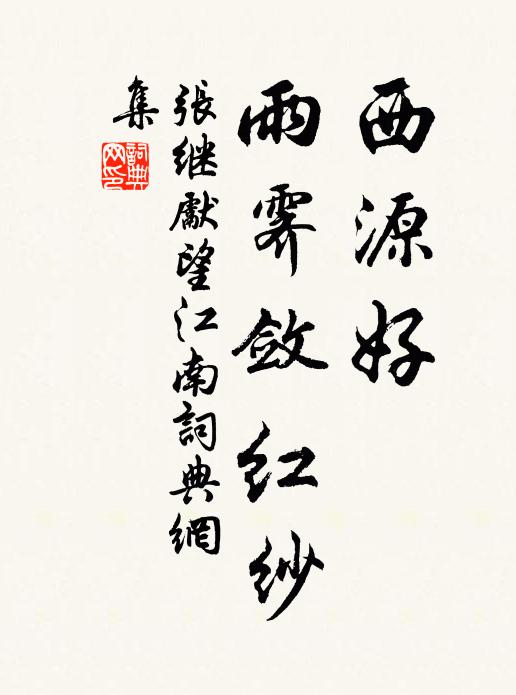 西源好
雨霁斂红紗
張继獻望江南詞典網
集
詞典网印